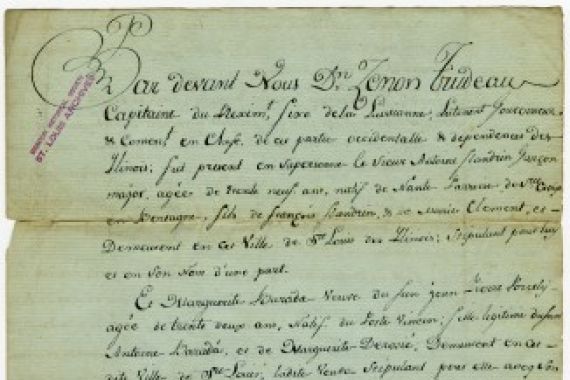 Par devant Nous Dn. Zenon Trudeau
Capitaine du Regimt. fixe de la Luisianne, Lieutenant Gouverneur
& Comendt. en Chef, de cet partie occidentalle & dependences des
Ilinois; fut present en sa personne le Sieur Antoine Flandrin Garçon
major, agée de trente neuf ans, natif de Nante Paroisse de Ste. Croix
en Bretagne, fils de François Flandrin, & de Marie Clement, et
Demeurent en cet Ville de St. Louis des Ilinois; Stipulant pour luy
et en Son Nom d'une part.
Et Marguerite Barada Veuve du feu jean Pierre
agée de trente deux ans, Natif du Poste Vincene; fille legitime du Sieur
Antoine Barada, et de Marguerite Demeurent en cet
Ville de St. Louis, Ladite Veuve Stipulant pour elle avec Son
ST. LOUIS ARCHIVES